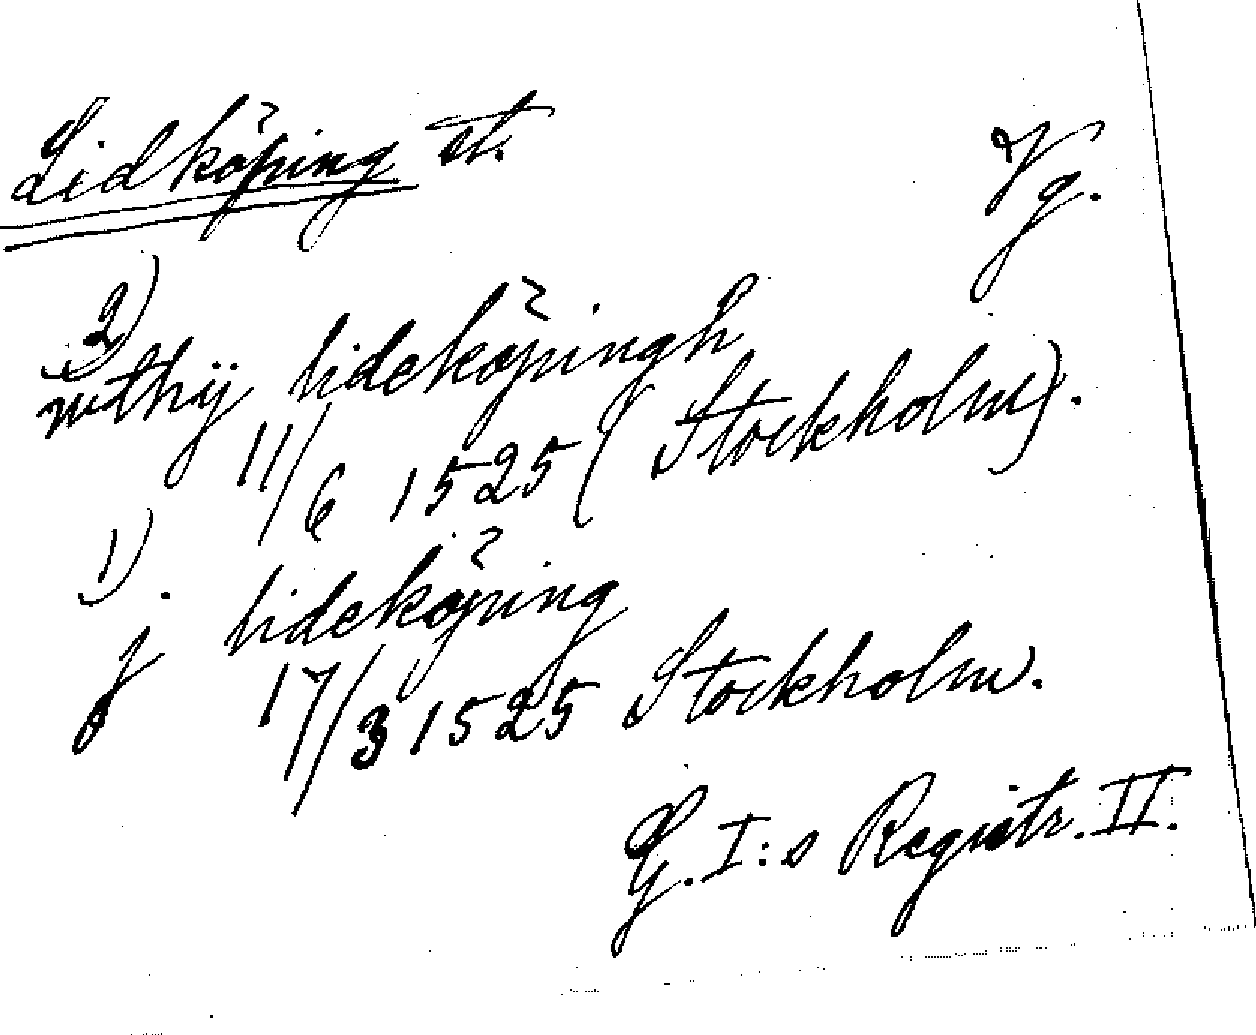 Lidköping st. Vg.
2)
wthij lideköpingh
11/6 1525 (Stockholm).
1).
j lideköping
17/3 1525 Stockholm.
G. I:s Registr. II.